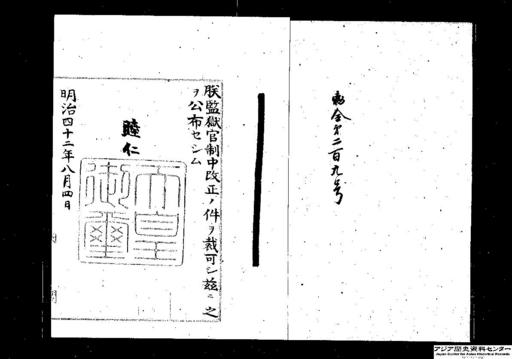 勅令第二百九号
朕監獄官制中改正ノ件ヲ裁可シ茲ニ之
ヲ公布セシム
睦仁
天皇御璽
明治四十二年八月四日
アジア歴史資料センター
Japan Center for Asian Historical Records